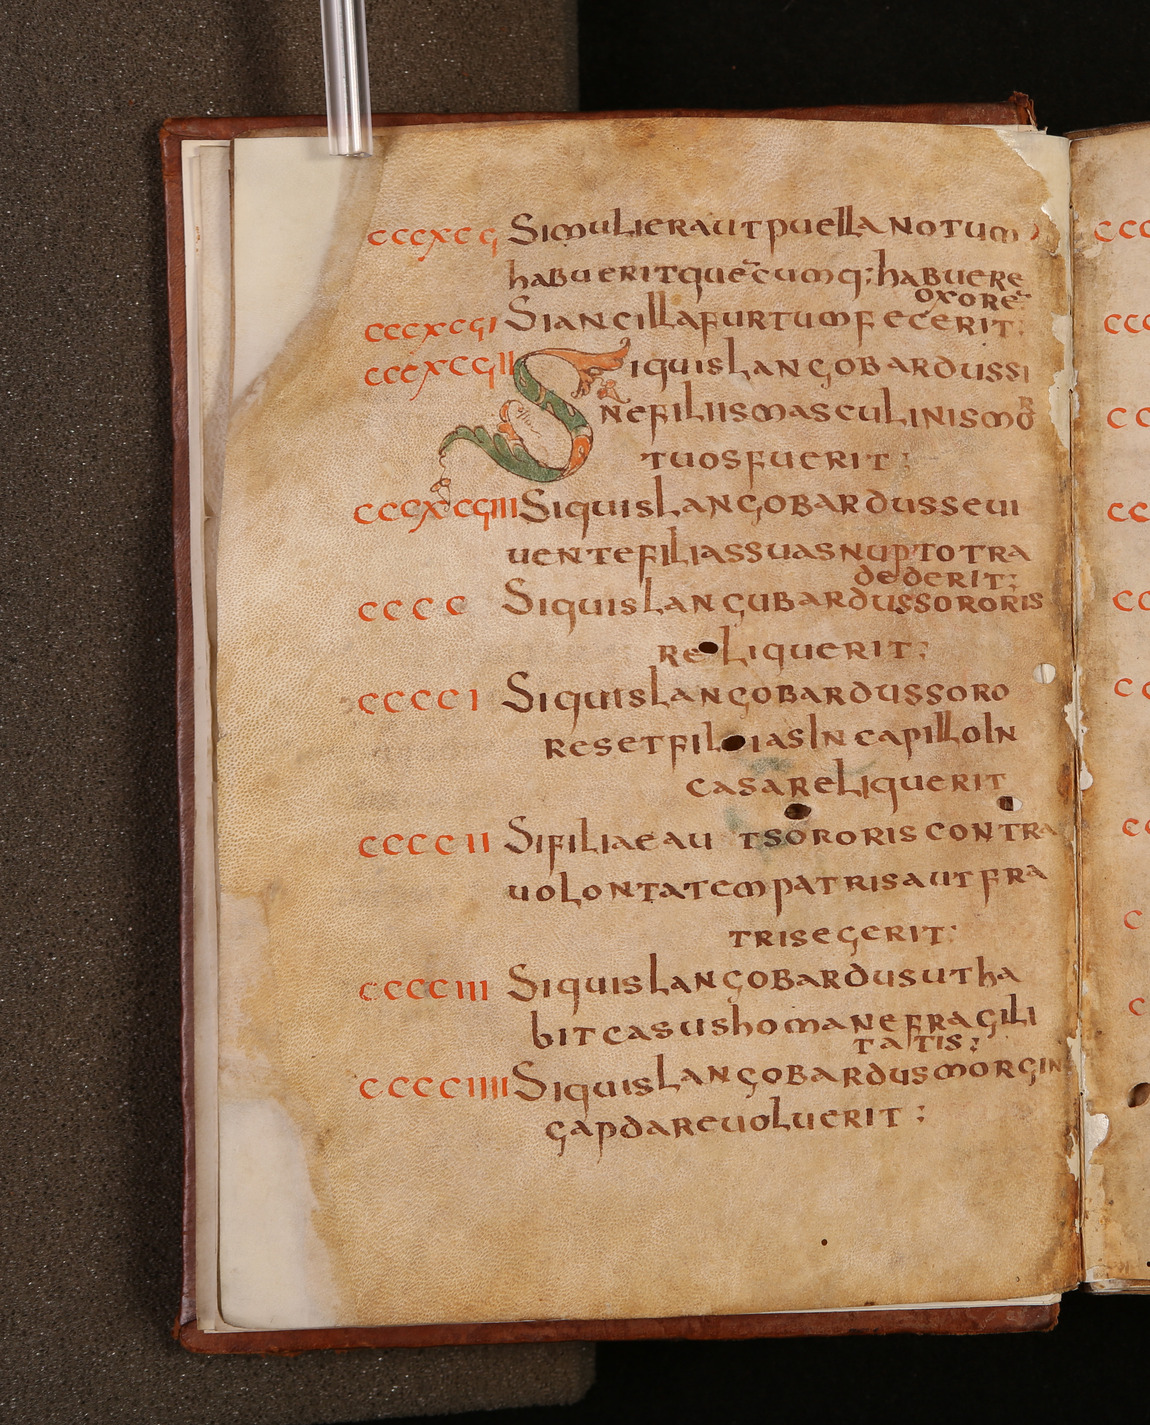 cccxcϛ Si mulier aut puella notum
habuerit quē cumq; habuere
oxorē
cccxcϛı Si ancilla furtum fecerit:
cccxcϛıı Si quis langobardus si
ne filiis masculinis mor
tuos fuerit:
cccxcϛııı Si quis langobardus se ui
uente filias suas nupto tra
dederit:
cccc Si quis langubardus sororis
reliquerit:
cccci Si quis langobardus soro
res et filias in capillo in
casa reliquerit
ccccii Si filiae aut sororis contra
uolontatem patris aut fra
tris egerit:
cccciii Si quis langobardus ut ha
bit casus homane fragili
tatis:
cccciiii Si quis langobardus morgin
gap dare uoluerit: